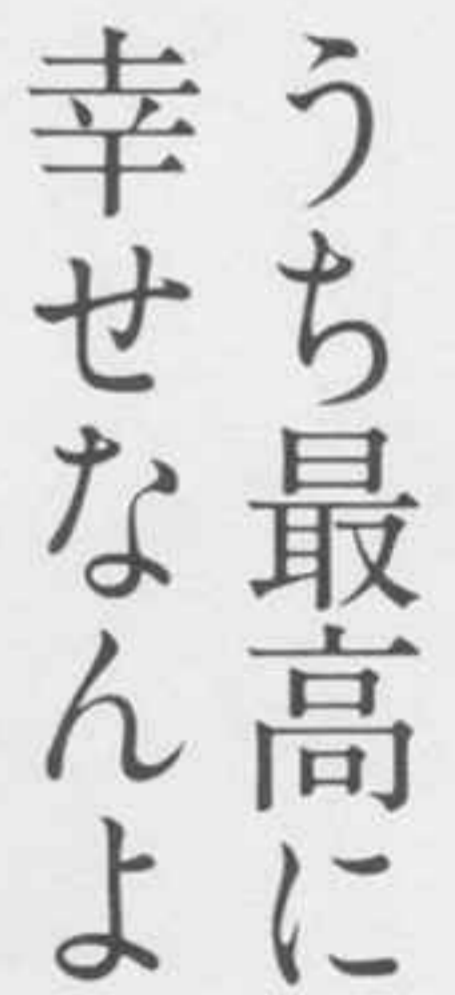 うち最高に
幸せなんよ